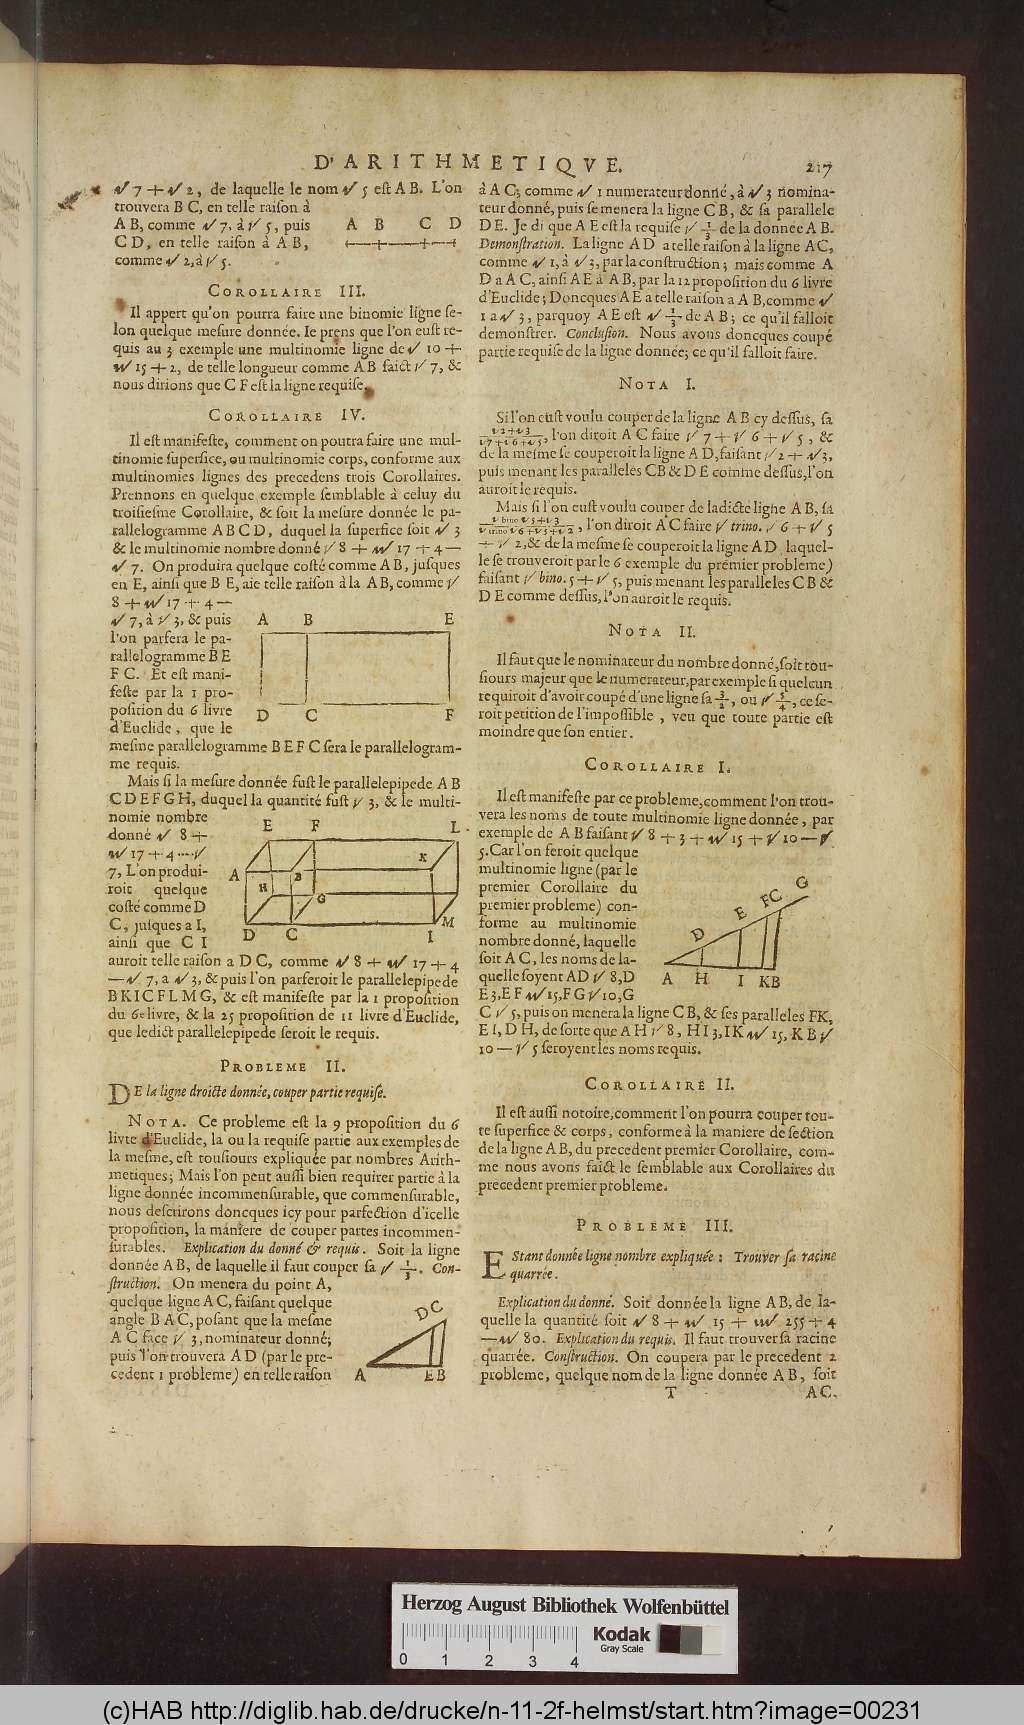 D'ARITHMETIQVE.
217
√ 7 + √ 2, de laquelle le nom √ 5 est A B. L'on
trouvera B C, en telle raison à
A B, comme √ 7, à √ 5, puis
C D, en telle raison à A B,
comme √ 2, à √ 5.
A B C D
COROLLAIRE III.
Il appert qu'on pourra faire une binomie ligne se-
lon quelque mesure donnée. Ie prens que l'on eust re-
quis au 3 exemple une multinomie ligne de √ 10 +
√√ 15 + 2, de telle longueur comme A B faict √ 7, &
nous dirions que C F est la ligne requise.
COROLLAIRE IV.
Il est manifeste, comment on poutra faire une mul-
tinomie superfice, ou multinomie corps, conforme aux
multinomies lignes des precedens trois Corollaires.
Prennons en quelque exemple semblable à celuy du
troisiesme Corollaire, & soit la mesure donnée le pa-
rallelogramme A B C D, duquel la superfice soit √ 3
& le multinomie nombre donné √ 8 + √√ 17 + 4 —
√ 7. On produira quelque costé comme A B, jusques
en E, ainsi que B E, aie telle raison à la A B, comme √
8 + √√ 17 + 4 —
√ 7, à √ 3, & puis
l'on parfera le pa-
rallelogramme B E
F C. Et est mani-
feste par la 1 pro-
position du 6 livre
d'Euclide, que le
A B E
D C F
mesme parallelogramme B E F C sera le parallelogram-
me requis.
Mais si la mesure donnée fust le parallelepipede A B
C D E F G H, duquel la quantité fust √ 3, & le multi-
nomie nombre
donné √ 8 +
√√ 17 + 4 — √
7, L'on produi-
roit quelque
costé comme D
C, jusques a I,
ainsi que C I
E F L
A H B K
G
D C I M
auroit telle raison a D C, comme √ 8 + √√ 17 + 4
— √ 7, a √ 3, & puis l'on parferoit le parallelepipede
B K I C F L M G, & est manifeste par la 1 proposition
du 6e livre, & la 25 proposition de 11 livre d'Euclide,
que ledict parallelepipede seroit le requis.
PROBLEME II.
DE la ligne droicte donnée, couper partie requise.
NOTA. Ce probleme est la 9 proposition du 6
livre d'Euclide, la ou la requise partie aux exemples de
la mesme, est tousiours expliquée par nombres Arith-
metiques; Mais l'on peut aussi bien requirer partie à la
ligne donnée incommensurable, que commensurable,
nous descrirons doncques icy pour parfection d'icelle
proposition, la maniere de couper partes incommen-
surables. Explication du donné & requis. Soit la ligne
donnée A B, de laquelle il faut couper sa √ 1/3. Con-
struction. On menera du point A,
quelque ligne A C, faisant quelque
angle B A C, posant que la mesme
A C face √ 3, nominateur donné;
puis l'on trouvera A D (par le pre-
cedent 1 probleme) en telle raison
D C
A E B
à A C; comme √ 1 numerateur donné, à √ 3 nomina-
teur donné, puis se menera la ligne C B, & sa parallele
D E. Je di que A E est la requise √ 1/3 de la donnée A B.
Demonstration. La ligne A D a telle raison à la ligne A C,
comme √ 1, à √ 3, par la construction; mais comme A
D a A C, ainsi A E à A B, par la 12 proposition du 6 livre
d'Euclide; Doncques A E a telle raison a A B, comme √
1 a √ 3, parquoy A E est √ 1/3 de A B; ce qu'il falloit
demonstrer. Conclusion. Nous avons doncques coupé
partie requise de la ligne donnée; ce qu'il falloit faire.
NOTA I.
Si l'on eust voulu couper de la ligne A B cy dessus, sa
√2+√3/√7+√6+√5, l'on diroit A C faire √ 7 + √ 6 + √ 5, &
de la mesme se couperoit la ligne A D, faisant √ 2 + √ 3,
puis menant les paralleles C B & D E comme dessus, l'on
auroit le requis.
Mais si l'on eust voulu couper de ladicte ligne A B, sa
√ bino √5+√3/√ trino √6+√5+√2, l'on diroit A C faire √ trino. √ 6 + √ 5
+ √ 2, & de la mesme se couperoit la ligne A D laquel-
le se trouveroit par le 6 exemple du premier probleme)
faisant √ bino. 5 + √ 5, puis menant les paralleles C B &
D E comme dessus, l'on auroit le requis.
NOTA II.
Il faut que le nominateur du nombre donné, soit tou-
siours majeur que le numerateur, par exemple si quelcun
requiroit d'avoir coupé d'une ligne sa 3/2, ou √ 5/4, ce se-
roit petition de l'impossible, veu que toute partie est
moindre que son entier.
COROLLAIRE I.
Il est manifeste par ce probleme, comment l'on trou-
vera les noms de toute multinomie ligne donnée, par
exemple de A B faisant √ 8 + 3 + √√ 15 + √ 10 — √
5. Car l'on feroit quelque
multinomie ligne (par le
premier Corollaire du
premier probleme) con-
forme au multinomie
nombre donné, laquelle
soit A C, les noms de la-
quelle soyent A D √ 8, D
E 3, E F √√ 15, F G √ 10, G
D E F C G
A H I K B
C √ 5, puis on menera la ligne C B, & ses paralleles F K,
E I, D H, de sorte que A H √ 8, H I 3, I K √√ 15, K B √
10 — √ 5 seroyent les noms requis.
COROLLAIRE II.
Il est aussi notoire, comment l'on pourra couper tou-
te superfice & corps, conforme à la maniere de section
de la ligne A B, du precedent premier Corollaire, com-
me nous avons faict le semblable aux Corollaires du
precedent premier probleme.
PROBLEME III.
EStant donnée ligne nombre expliquée: Trouver sa racine
quarrée.
Explication du donné. Soit donnée la ligne A B, de la-
quelle la quantité soit √ 8 + √√ 15 + √√√ 255 + 4
— √√ 80. Explication du requis. Il faut trouver sa racine
quarrée. Construction. On coupera par le precedent 2
probleme, quelque nom de la ligne donnée A B, soit
T
A C.
Herzog August Bibliothek Wolfenbüttel
Kodak
Gray Scale
0 1 2 3 4
(c)HAB http://diglib.hab.de/drucke/n-11-2f-helmst/start.htm?image=00231